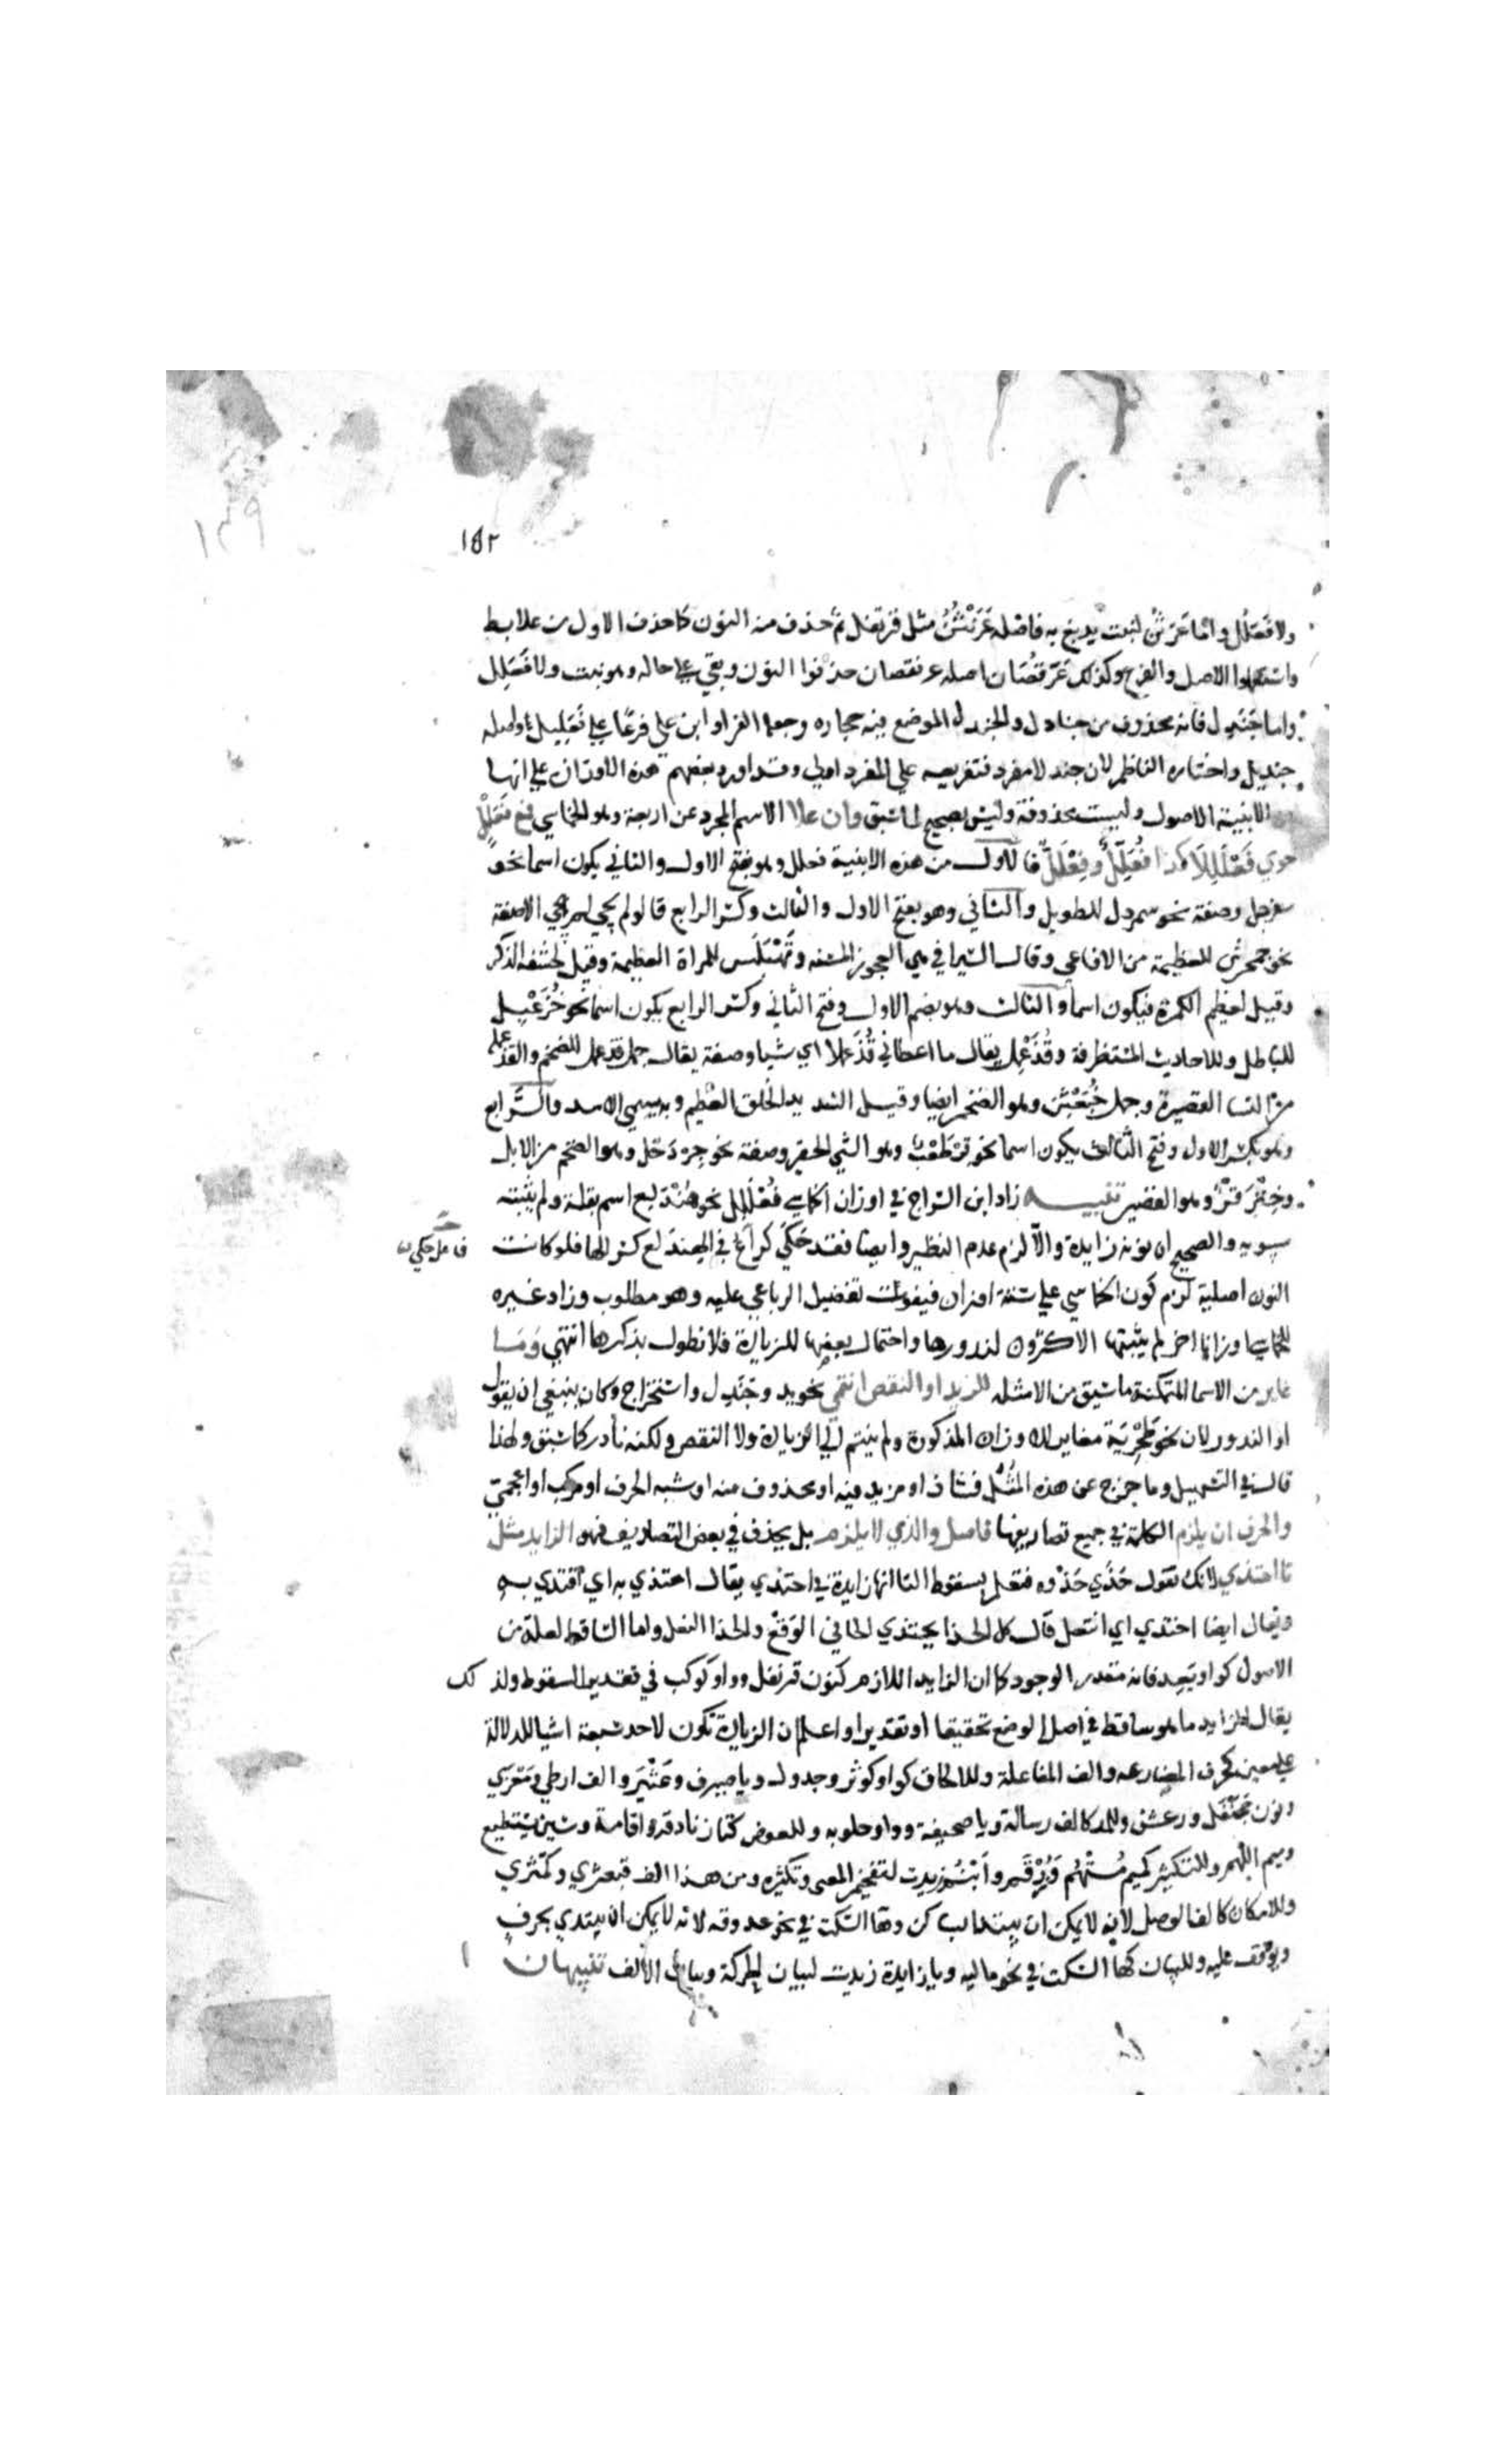 ١٥٢
١٤٩
ولا فَعَلُل واما عَرَتُن لنبت يدبغ به فاصله عَرَنْتُن مثل قرنفل ثم حذف منه النون كما حذف الالف من علابط
واستعملوا الاصل والفرع وكذلك عَرَقُصَان اصله عرنقصان حذفوا النون وبقي علي حاله وهو نبت ولا فَعَلِل
واما جَنَدِل فانه محذوف من جنادل والجندل الموضع فيه حجاره وجعله الفرا وابو علي فرعا علي فَعَليل واصله
جنديل واختاره الناظم لان جندلا مفرد فتفريعه علي المفرد اولي وقد اورد بعضهم هذه الاوزان علي انها
من الابنية الاصول وليست محذوفة وليس بصحيح لما سبق وان علا الاسم المجرد عن اربعة وهو الخماسي فمع فَعَلَّل
حوي فَعْلَلِلا كذا فُعَلِّلٌ وفِعْلَلٌّ فالاول من هذه الابنية فعلل وهو بفتح الاول والثاني يكون اسما نحو
سفرجل وصفة نحو سمردل للطويل والثاني وهو بفتح الاول والثالث وكسر الرابع قالوا لم يجي الا صفة
نحو جحمرش للعظيمة من الافاعي وقال السيرافي هي العجوز المسنه وقَهْبَلِس للمراة العظيمة وقيل لحشفه الذكر
وقيل لعظيم الكمرة فيكون اسما والثالث وهو بضم الاول وفتح الثاني وكسر الرابع يكون اسما نحو خُزَعْبِل
للباطل وللاحاديث المستظرفة وقُذَعْمِل يقال ما اعطاني قُذَعملا اي شيا وصفة يقال جمل قذعمل للضخم والقذعملة
من النسا القصيرة وجمل خُبَعْثِن وهو الضخم ايضا وقيل الشديد الخلق العظيم وبه سمي الاسد والرابع
وهو بكسر الاول وفتح الثالث يكون اسما نحو قِرْطَعْب وهو الشي الحقير وصفة نحو جِرْدَحْل وهو الضخم من الابل
وحِنْزَقْر وهو القصير تنبيه زاد ابن السراج في اوزان الخماسي فُعْلَلِل نحو هُنْدَلِع اسم بقلة ولم يثبته
سيبويه والصحيح ان نونه زايدة والا لزم عدم النظير وايضا فقد حكي كراع في الهندلع كسر الها فلو كانت
النون اصلية لزم كون الخماسي علي ستة اوزان فيفوت تفضيل الرباعي عليه وهو مطلوب وزاد غيره
للخماسي اوزانا اخر لم يثبتها الاكثرون لندورها واحتمال بعضها للزيادة فلا نطول بذكرها انتهي وَمَا
غاير من الاسما المتمكنة ما سبق من الامثله للزيد او النقص انتمي نحو يد وجَنَدِل واستخراج وكان ينبغي ان يقول
او الندور لان نحو طَحْرِبَة مغاير للاوزان المذكورة ولم ينتم الي الزيادة ولا النقص ولكنه نادر كما سبق ولهذا
قال في التسهيل وما خرج عن هذه المُثُل فشاذ او مزيد فيه او محذوف منه او شبه الحرف او مركب او اعجمي
والحرف ان يلزم الكلمة في جميع تصاريفها فاصل والذي لا يلزم بل يحذف في بعض التصاريف فهو الزايد مثل
تا احتذي لانك تقول حَذَي حَذْوه فتعلم بسقوط التا انها زايدة في احتذي يقال احتذي به اي اقتدي به
ويقال ايضا احتذي اي انتعل قال كل الحذا يحتذي الحافي الوَقِعْ والحذا النعل واما الساقط لعلة من
الاصول كواو يعد فانه مقدر الوجود كما ان الزايد اللازم كنون قرنفل وواو كوكب في تقدير السقوط ولذلك
يقال الزايد ما هو ساقط في اصل الوضع تحقيقا او تقديرا واعلم ان الزيادة تكون لاحد سبعة اشيا للدلالة
علي معني كحرف المضارعه والف المفاعلة وللالحاق كواو كوثر وجدول ويا صيرف وعَثْيَر والف ارطي ومعزي
ونون جَحَنْفَل ورعشن وللمد كالف رسالة ويا صحيفة وواو حلوبه وللعوض كتا زنادقه واقامة وسين يستطيع
وميم اللهم وللتكثير كميم سُتْهُم وزُرْقُم وابْنُم زيدت لتفخيم المعني وتكثيره ومن هذا الف قبعثري وكمثري
وللامكان كالف الوصل لانه لا يمكن ان يبتدا بساكن وها السكت في نحو عه وقه لانه لا يمكن ان يبتدي بحرف
ويوقف عليه وللبيان كها السكت في نحو ماليه ويا زيداه زيدت لبيان الحركة وبيان الالف تنبيهان